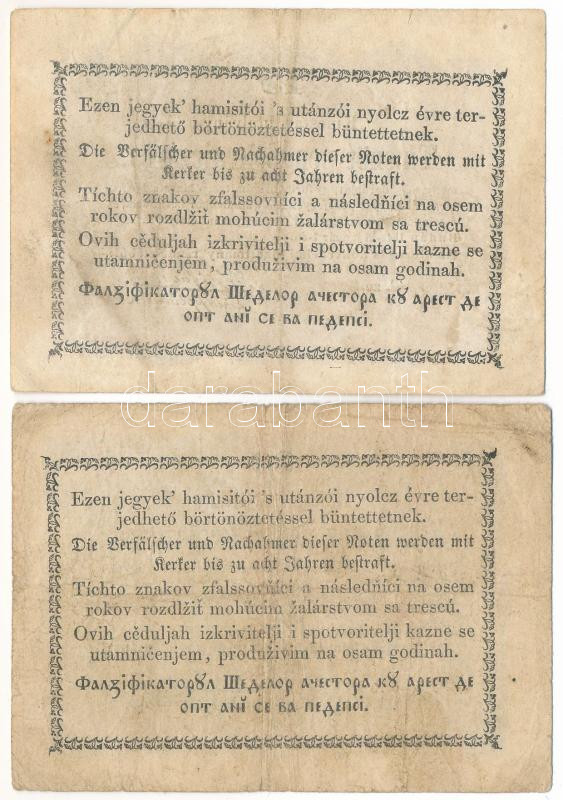 Ezen jegyek' hamisitói 's utánzói nyolcz évre ter-
jedhető börtönöztetéssel büntettetnek.
Die Verfälscher und Nachahmer dieser Noten werden mit
Kerker bis zu acht Jahren bestraft.
Tíchto znakov zfalssovňíci a následňíci na osem
rokov rozdlžiť mohúcim žalárstvom sa trescú.
Ovih cěduljah izkrivitelji i spotvoritelji kazne se
utamničenjem, produživim na osam godinah.
Фалꙁіфікаторꙋл Шеделор ачестора кꙋ арест де
опт анї се ва педепсі.
darabanth
Ezen jegyek' hamisitói 's utánzói nyolcz évre ter-
jedhető börtönöztetéssel büntettetnek.
Die Verfälscher und Nachahmer dieser Noten werden mit
Kerker bis zu acht Jahren bestraft.
Tíchto znakov zfalssovňíci a následňíci na osem
rokov rozdlžiť mohúcim žalárstvom sa trescú.
Ovih cěduljah izkrivitelji i spotvoritelji kazne se
utamničenjem, produživim na osam godinah.
Фалꙁіфікаторꙋл Шеделор ачестора кꙋ арест де
опт анї се ва педепсі.